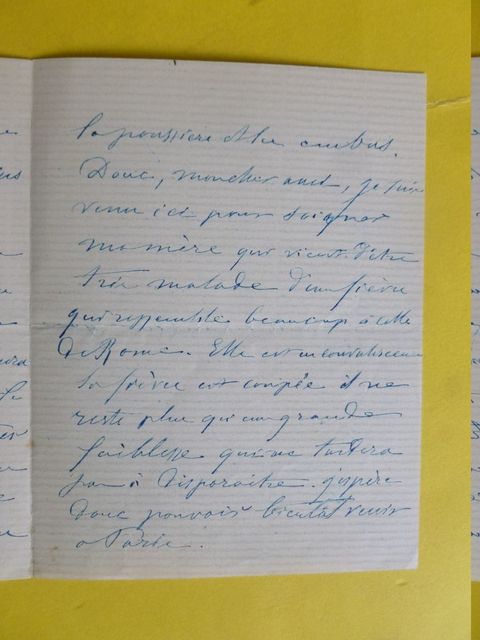 la poussière et les
Donc, mon cher ami, je suis
venu ici pour soigner
ma mère qui vient d'être
très malade d'une fièvre
qui ressemble beaucoup à celle
de Rome. Elle est en convalescence
la fièvre est coupée il ne
reste plus qu'une grande
faiblesse qui ne tardera
pas à disparaitre. j'espère
donc pouvoir bientôt venir
a Paris.